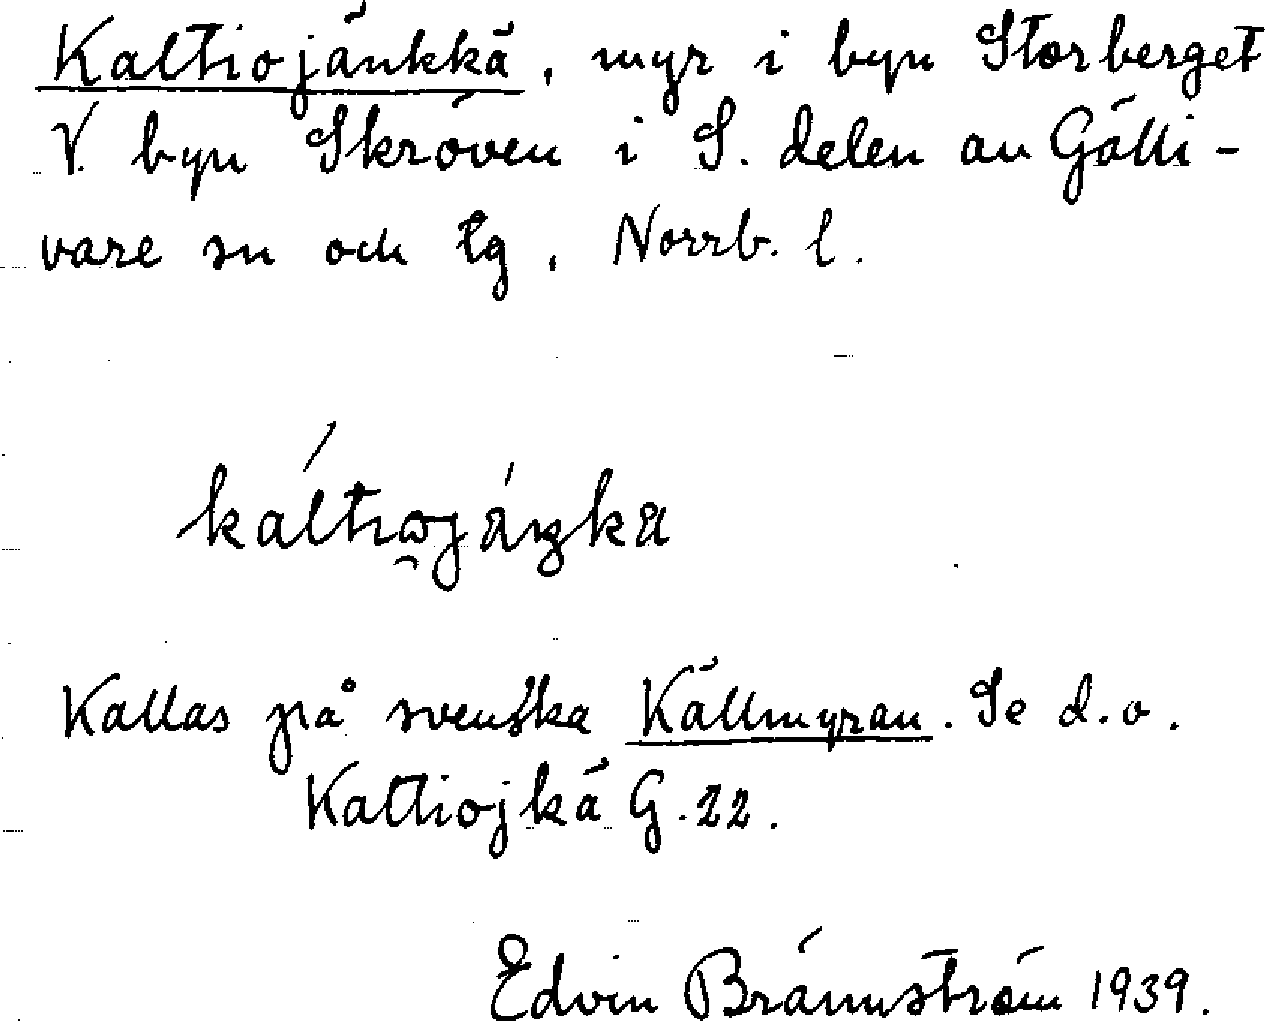 Kaltiojänkkä, myr i byn Storberget
V. byn Skröven i S. delen av Gälli-
vare sn och tg, Norrb. l.
Kallas på svenska Källmyran. Se d.o.
Kaltiojkä G.22.
Edvin Brännström 1939.